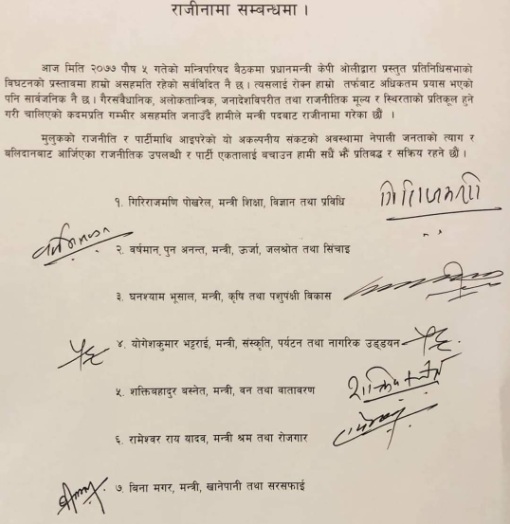 राजीनामा सम्बन्धमा ।
आज मिति २०७७ पौष ५ गतेको मन्त्रिपरिषद बैठकमा प्रधानमन्त्री केपी ओलीद्वारा प्रस्तुत प्रतिनिधिसभाको
विघटनको प्रस्तावमा हाम्रो असहमति रहेको सर्वविदितै छ । त्यसलाई रोक्न हाम्रो तर्फबाट अधिकतम प्रयास भएको
पनि सार्वजनिक नै छ । गैरसवैधानिक, अलोकतान्त्रिक, जनादेशविपरीत तथा राजनीतिक मूल्य र स्थिरताको प्रतिकूल हुने
गरी चालिएको कदमप्रति गम्भीर असहमति जनाउँदै हामीले मन्त्री पदबाट राजीनामा गरेका छौं ।
मुलुकको राजनीति र पार्टीमाथि आइपरेको यो अकल्पनीय संकटको अवस्थामा नेपाली जनताको त्याग र
बलिदानबाट आर्जिएका राजनीतिक उपलब्धी र पार्टी एकतालाई बचाउन हामी सधैं झैं प्रतिबद्ध र सक्रिय रहने छौं ।
१. गिरिराजमणि पोखरेल, मन्त्री शिक्षा, विज्ञान तथा प्रविधि
२. वर्षमान पुन अनन्त, मन्त्री, ऊर्जा, जलश्रोत तथा सिंचाइ
३. घनश्याम भूसाल, मन्त्री, कृषि तथा पशुपंक्षी विकास
४. योगेशकुमार भट्टराई, मन्त्री, संस्कृति, पर्यटन तथा नागरिक उड्डयन
५. शक्तिबहादुर बस्नेत, मन्त्री, वन तथा वातावरण
६. रामेश्वर राय यादव, मन्त्री श्रम तथा रोजगार
७. बिना मगर, मन्त्री, खानेपानी तथा सरसफाई